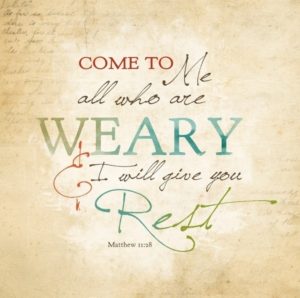 COME TO Me
all who are
WEARY
& I will give you
Rest
Matthew 11:28